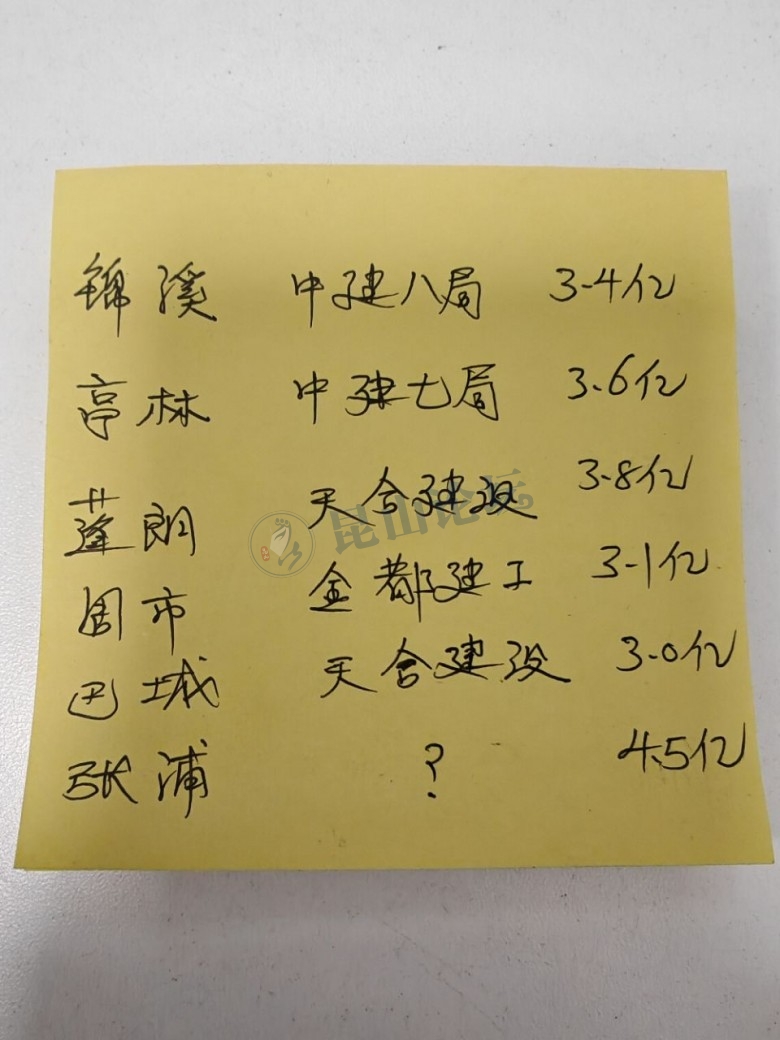 锦溪 中建八局 3.4亿
亭林 中建七局 3.6亿
蓬朗 天合建设 3.8亿
昆山论坛
周市 金都建工 3.1亿
巴城 天合建设 3.0亿
张浦 ? 4.5亿